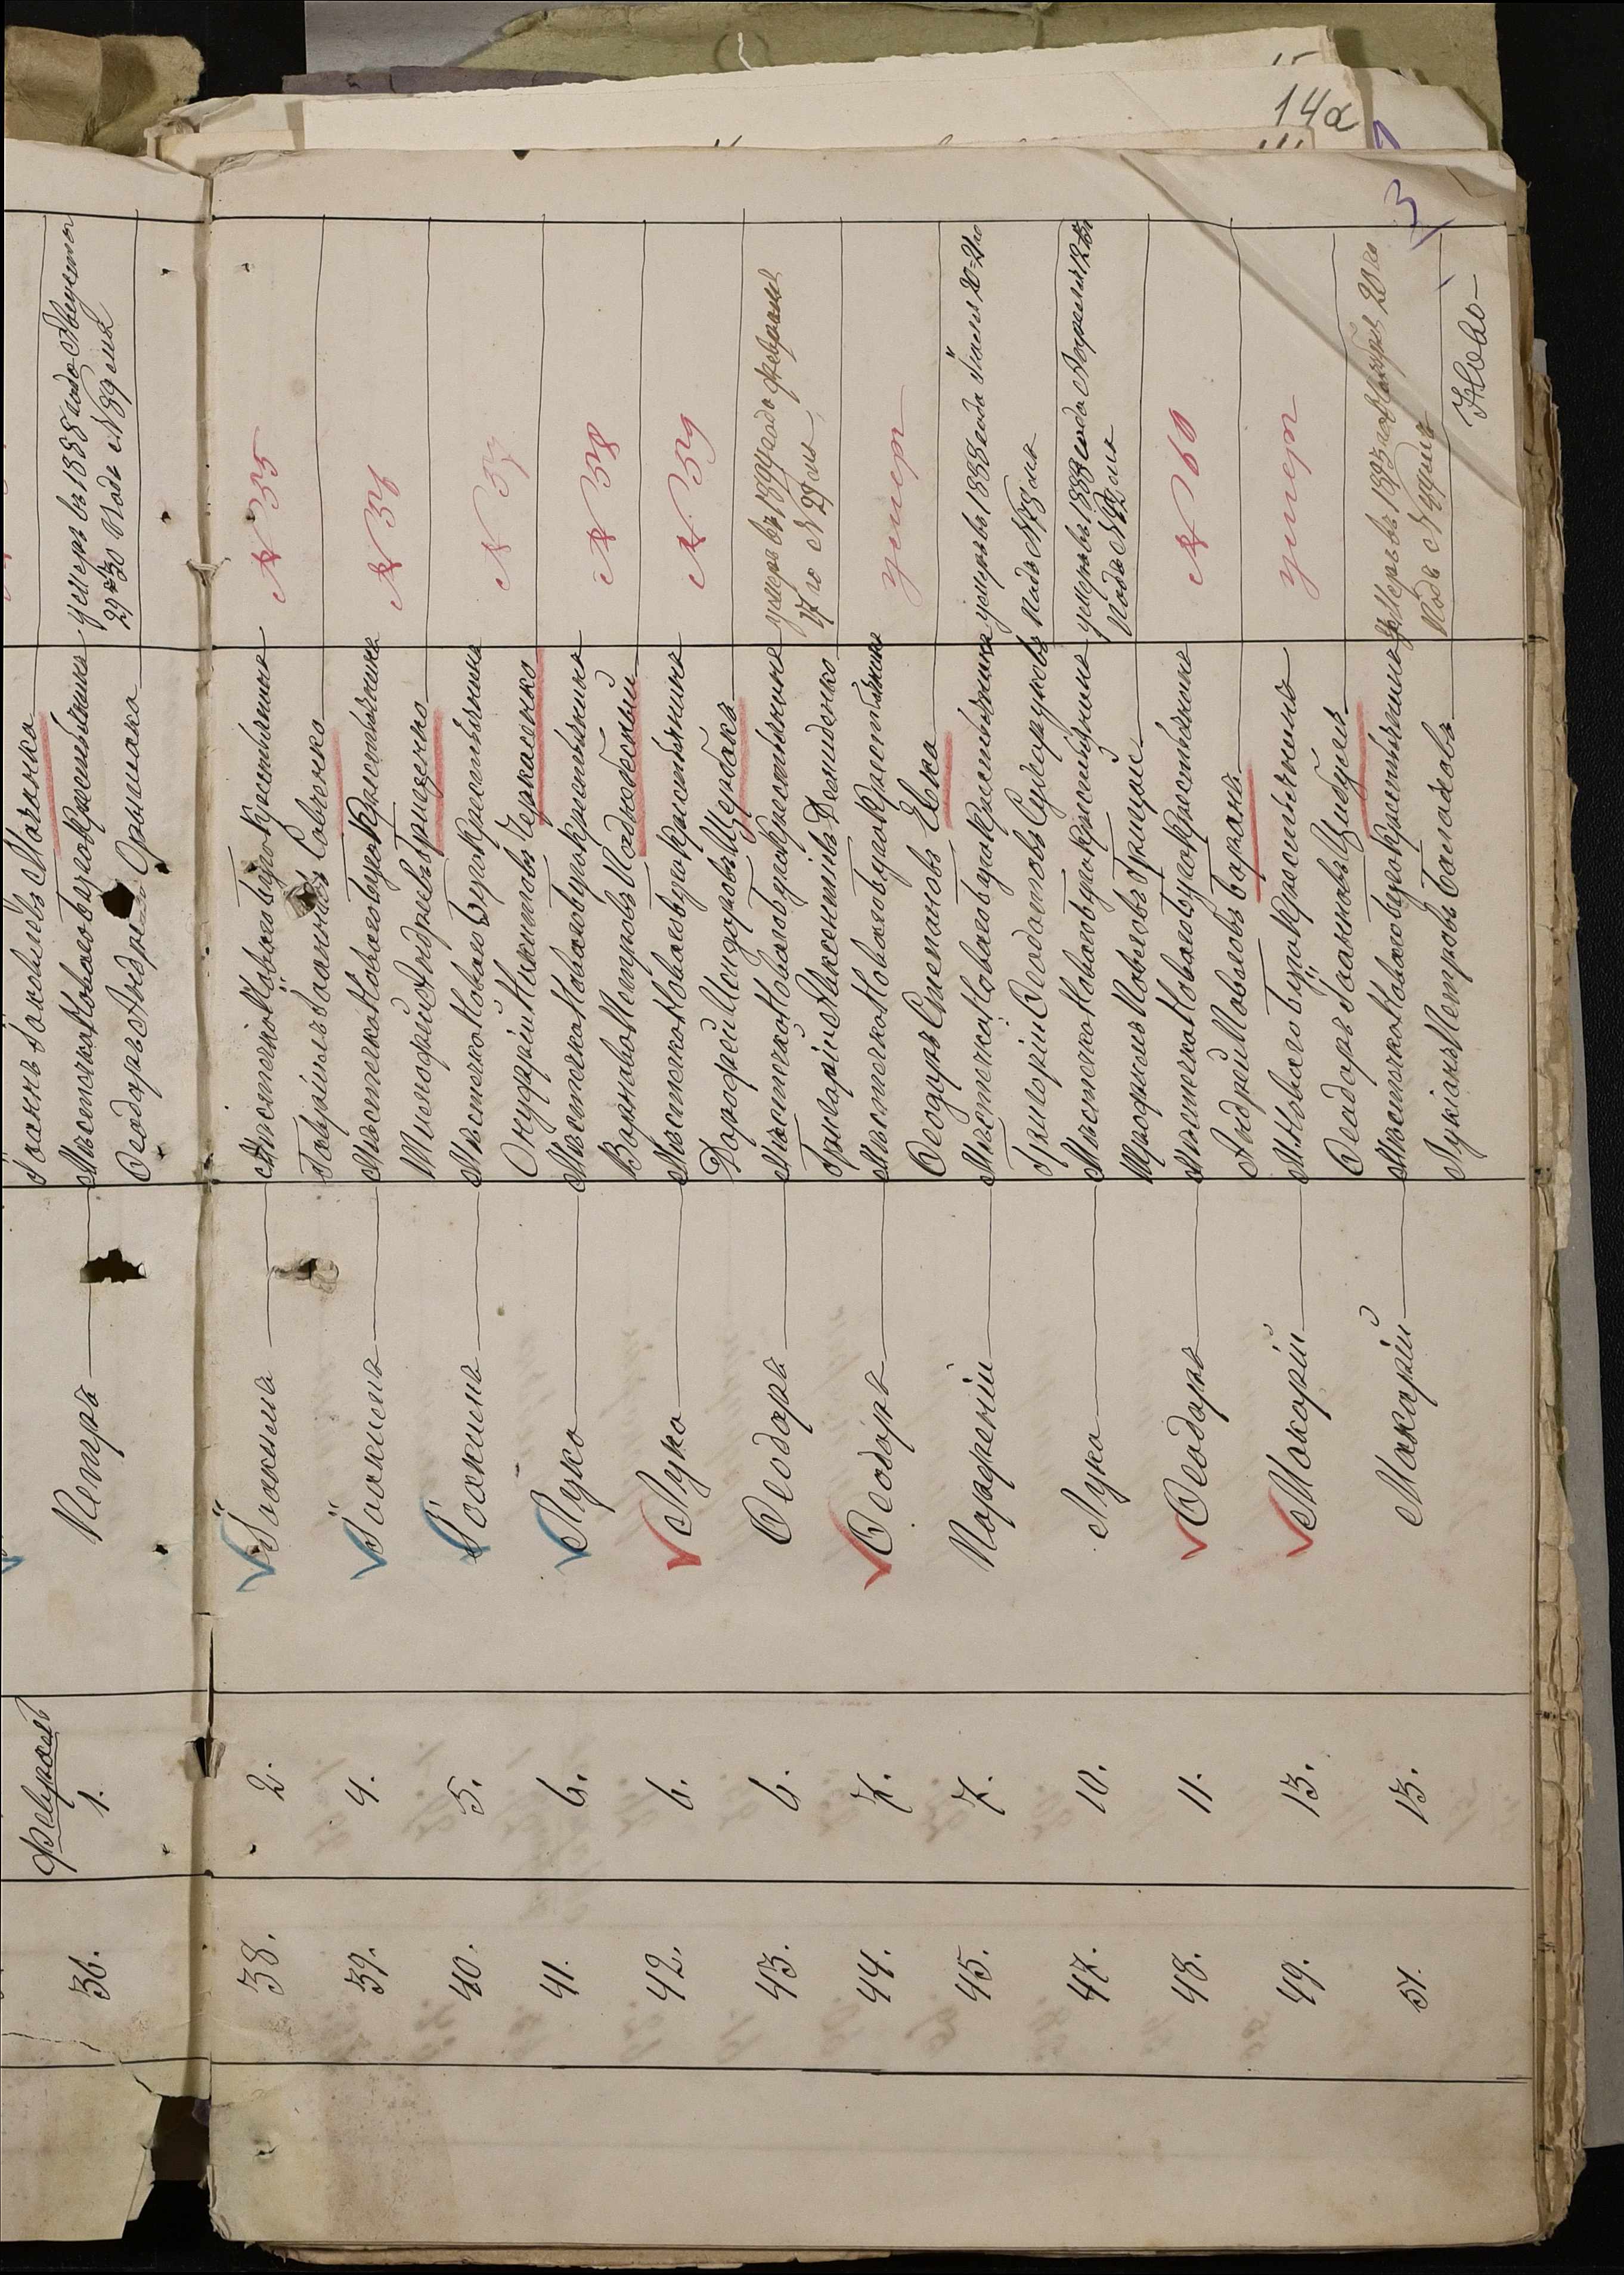 14а
3
Іоаннъ Іаковлевъ Маганка
Февраль
36.
1.
Петръ
Мѣстечка Новаго Буга Крестьянина
Ѳеодоръ Андреевъ
умеръ въ 1888 года Августа
29 подъ № 89 мъ
38.
2.
Іоакимъ
Мѣстечка Новаго Буга Крестьянинъ
Гавріилъ Іоанновъ Савченко
№ 35
39.
4.
Іоакимъ
Мѣстечка Новаго Буга Крестьянина
Тимофей Андреевъ Гриценко
№ 36
40.
5.
Іоакимъ
Мѣстечка Новаго Буга Крестьянина
Онуфрій Никитовъ Черкасенко
№ 37
41.
6.
Лука
Мѣстечка Новаго Буга крестьянина
Варнава Петровъ
№ 38
42.
6.
Лука
Мѣстечка Новаго Буга Крестьянина
Дорофей Исидоровъ Щербакъ
№ 39
43.
6.
Ѳеодоръ
Мѣстечка Новаго Буга Крестьянина
Григорій Авксентіевъ Демиденко
умеръ въ 1894 года февраля
17 го № 29 мъ
44.
7.
Ѳеодоръ
Мѣстечка Новаго Буга Крестьянина
Ѳеодулъ Степановъ Евка
умеръ
45.
7.
Парфеній
Мѣстечка Новаго Буга крестьянина
Григорій Ѳеодотовъ Сухоруковъ
умеръ въ 1888 года Іюля 20-го
подъ № 78 мъ
47.
10.
Лука
Мѣстечка Новаго Буга крестьянина
Трофимъ Павловъ Грицай
умеръ въ 1888 года Апреля 12 го
подъ № 42 мъ
48.
11.
Ѳеодоръ
Мѣстечка Новаго Буга Крестьянина
Андрей Павловъ Баранъ
№ 60
49.
13.
Макарій
М Новаго Буга Крестьянинъ
Ѳеодоръ Іоанновъ Цыбулья
умеръ
51.
13.
Макарій
Мѣстечка Новаго Буга крестьянина
Лукіанъ Петровъ Балабанъ
умеръ въ 1893 20 го
подъ №
Ново-